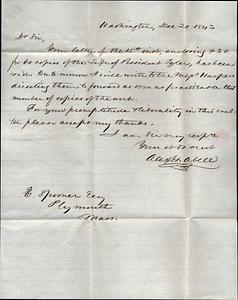 Washington, Dec 20 1843
Dr Sir,
Your letter of the 15th inst, enclosing $30
for 60 copies of the Life of President Tyler, has been
rec'd. Enter and I will write to the Messrs Harpers
directing them to forward as soon as practicable this
number of copies of the work.
For your promptitude & liberality in this mat-
ter please accept my thanks.
I am Sir very resp'y
Your obt Servt
Alex
E. Spooner Esq
Plymouth
Mass.